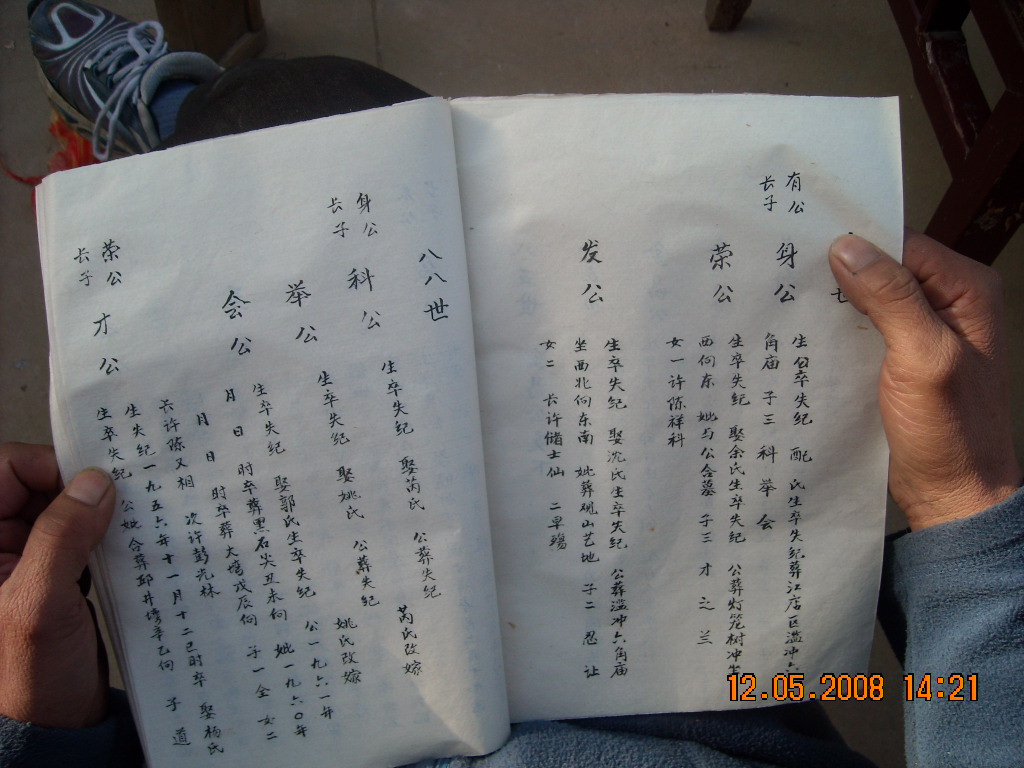 世
有公
长子
身公
生公卒失纪 配 氏生卒失纪葬江店区滥冲六
角庙 子三 科 举 会
荣公
生卒失纪 娶余氏生卒失纪 公葬灯笼树冲
西向东 妣与公合墓 子三 才 之 兰
女一许陈祥科
发公
生卒失纪 娶沈氏生卒失纪 公葬滥冲六角庙
坐西北向东南 妣葬砚山艺地 子二 忍 让
女二 长许储士仙 二早殇
八八世
身公
长子
科公
生卒失纪 娶芮氏 公葬失纪 芮氏改嫁
举公
生卒失纪 娶姚氏 公葬失纪 姚氏改嫁
会公
生卒失纪 娶郭氏生卒失纪 公一九六一年
月 日 时卒葬黑石尖丑未向 妣一九六〇年
月 日 时卒葬大塆戊辰向 子一全 女二
长许陈又相 次许彭光林
荣公
长子
才公
生失纪一九五六年十一月十二巳时卒 娶杨氏
生卒失纪 公妣合葬邱井塝辛乙向 子 道
12.05.2008 14:21